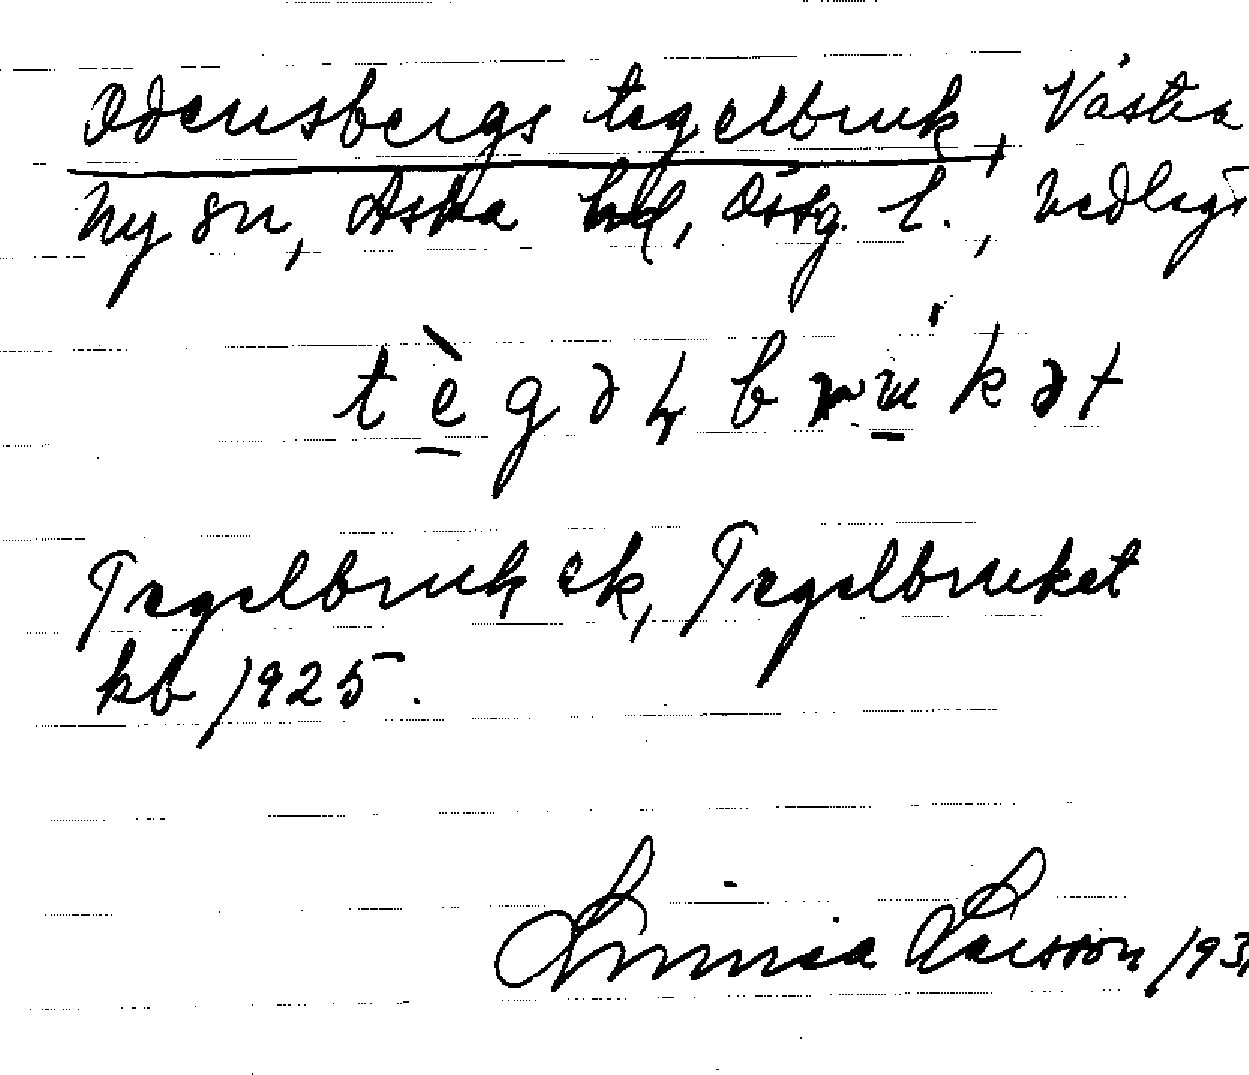 Odensbergs tegelbruk, Västra
Ny sn, Aska hd, Östg. l.,
tè̠gəl̥bru̠kət
Tegelbruk ek, Tegelbruket
kb 1925.
Linnea Larsson 193